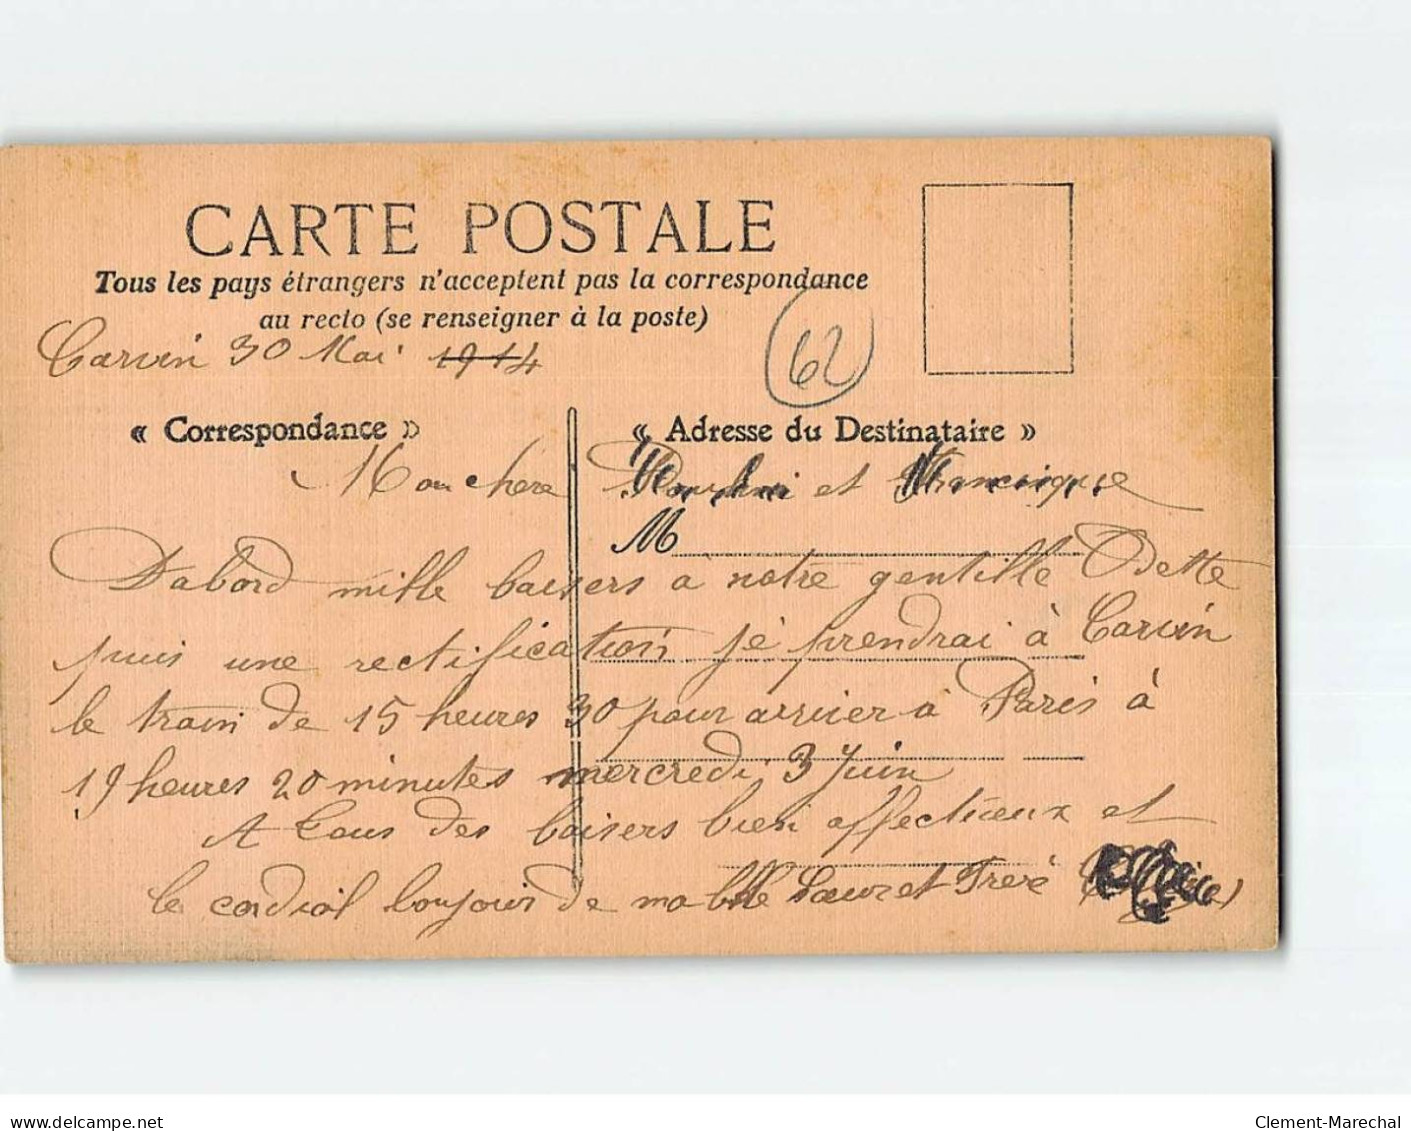 CARTE POSTALE
Tous les pays étrangers n'acceptent pas la correspondance
au recto (se renseigner à la poste)
Carvin 30 Mai 1914
62
« Correspondance »
« Adresse du Destinataire »
Mon chère et
M
Dabord mille baisers a notre gentille Odette
puis une rectification je prendrai à Carvin
le train de 15 heures 30 pour arriver à Paris à
19 heures 20 minutes mercredi 3 Juin
A tous des baisers bien affectueux et
le cordial bonjour de ma belle Sœur et Frère
delcampe.net
Clement-Marechal